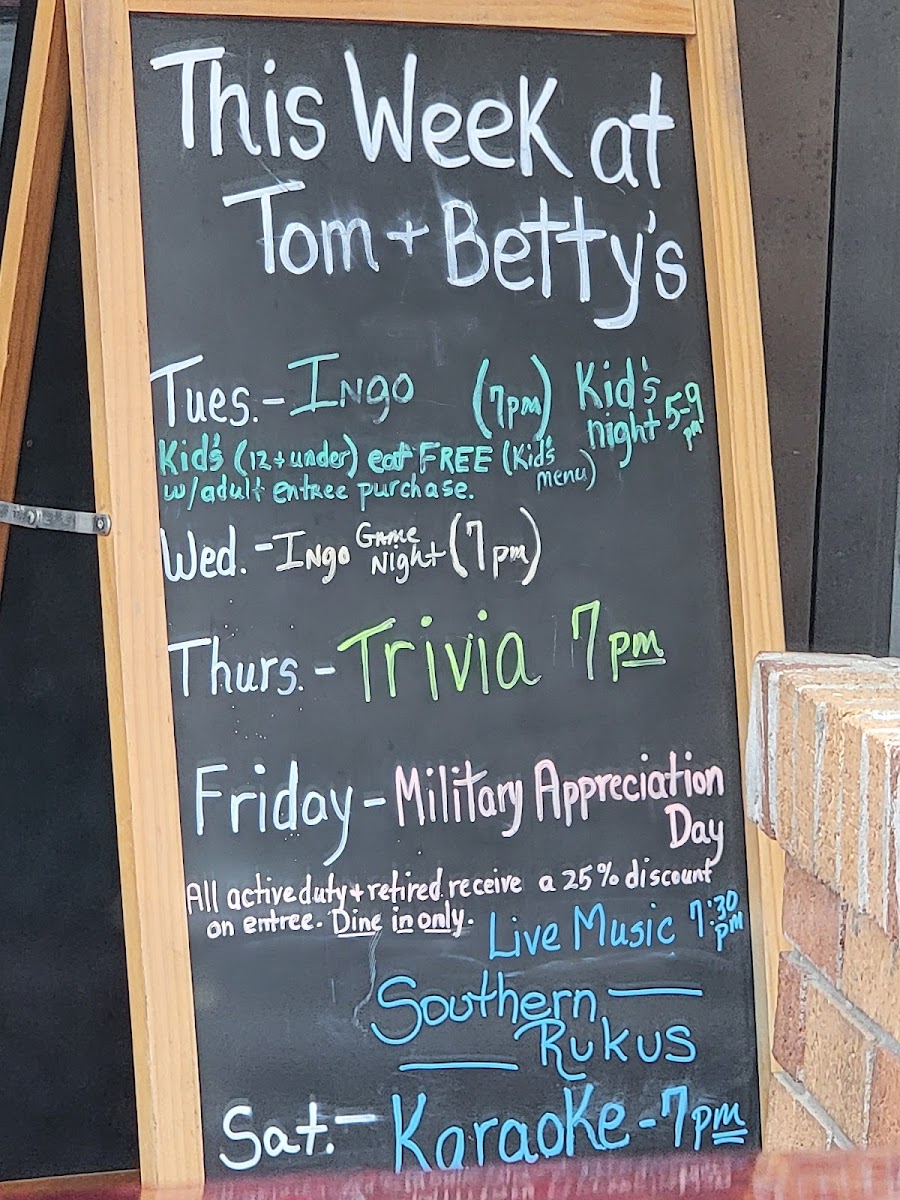 This Week at
Tom + Betty's
Tues. - Ingo (7pm) Kid's night 5-9 pm
Kid's (12 + under) eat FREE (Kid's menu)
w/adult entree purchase.
Wed. - Ingo Game Night (7pm)
Thurs. - Trivia 7pm
Friday - Military Appreciation
Day
All active duty + retired receive a 25% discount
on entree. Dine in only.
Live Music 7:30 pm
Southern
Rukus
Sat. - Karaoke - 7pm